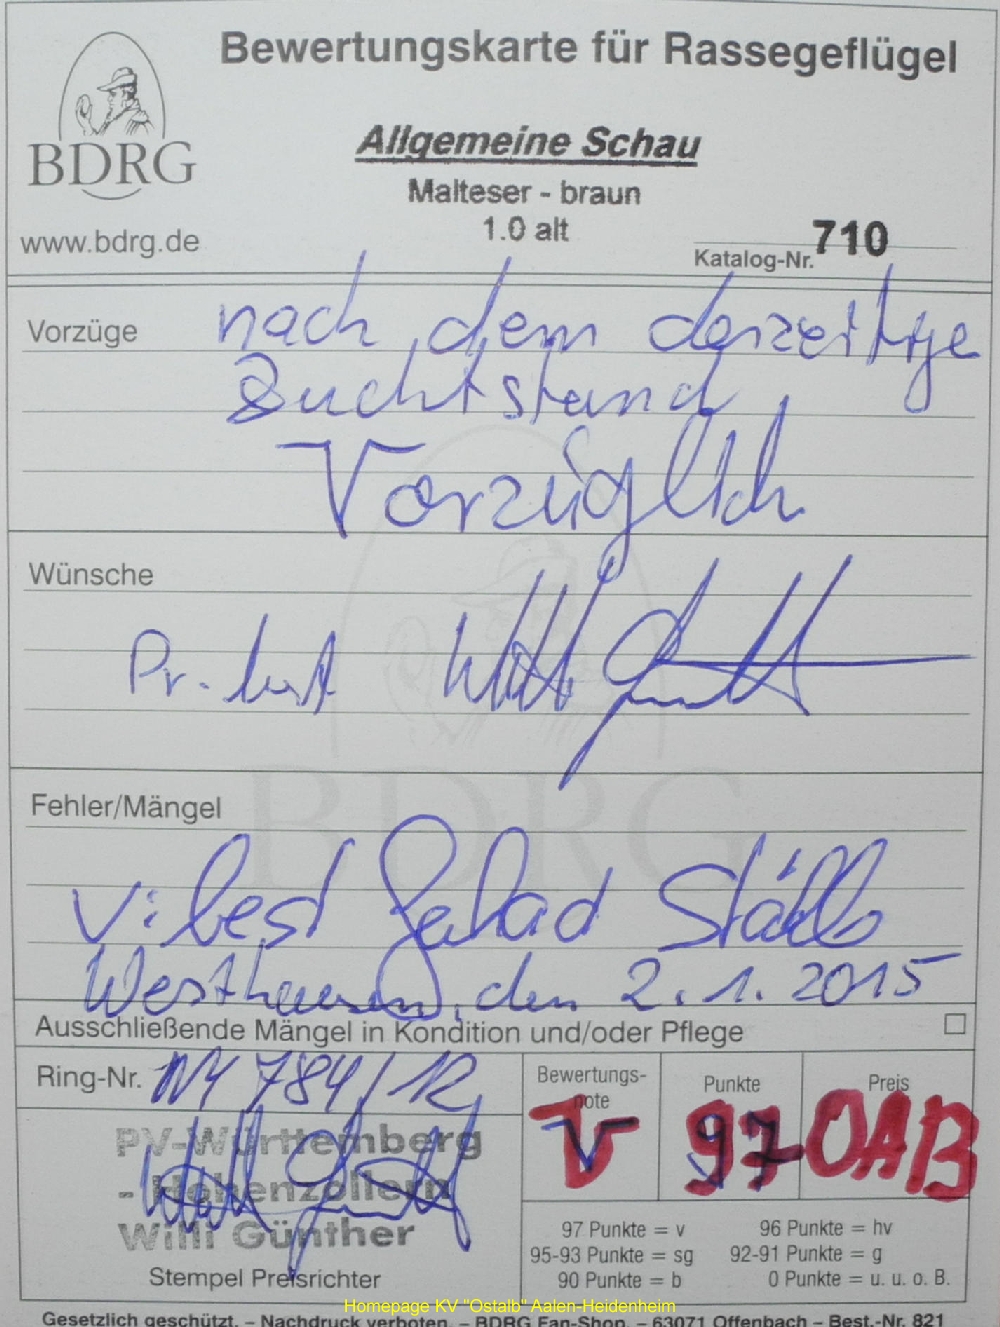 Bewertungskarte für Rassegeflügel
BDRG
www.bdrg.de
Allgemeine Schau
Malteser - braun
1.0 alt
Katalog-Nr. 710
Vorzüge nach dem derzeitige
Zuchtstand
Vorzüglich
Wünsche
Pr.
BDRG
Fehler/Mängel
Westhausen, den 2.1.2015
Ausschließende Mängel in Kondition und/oder Pflege
Ring-Nr. 784/12
PV-Württemberg
- Hohenzollern
Willi Günther
Stempel Preisrichter
Bewertungs-
note
V
Punkte
97
Preis
OAB
97 Punkte = v 96 Punkte = hv
95-93 Punkte = sg 92-91 Punkte = g
90 Punkte = b 0 Punkte = u. u. o. B.
Homepage KV "Ostalb" Aalen-Heidenheim
Gesetzlich geschützt. – Nachdruck verboten. – BDRG Fan-Shop. – 63071 Offenbach – Best.-Nr. 821